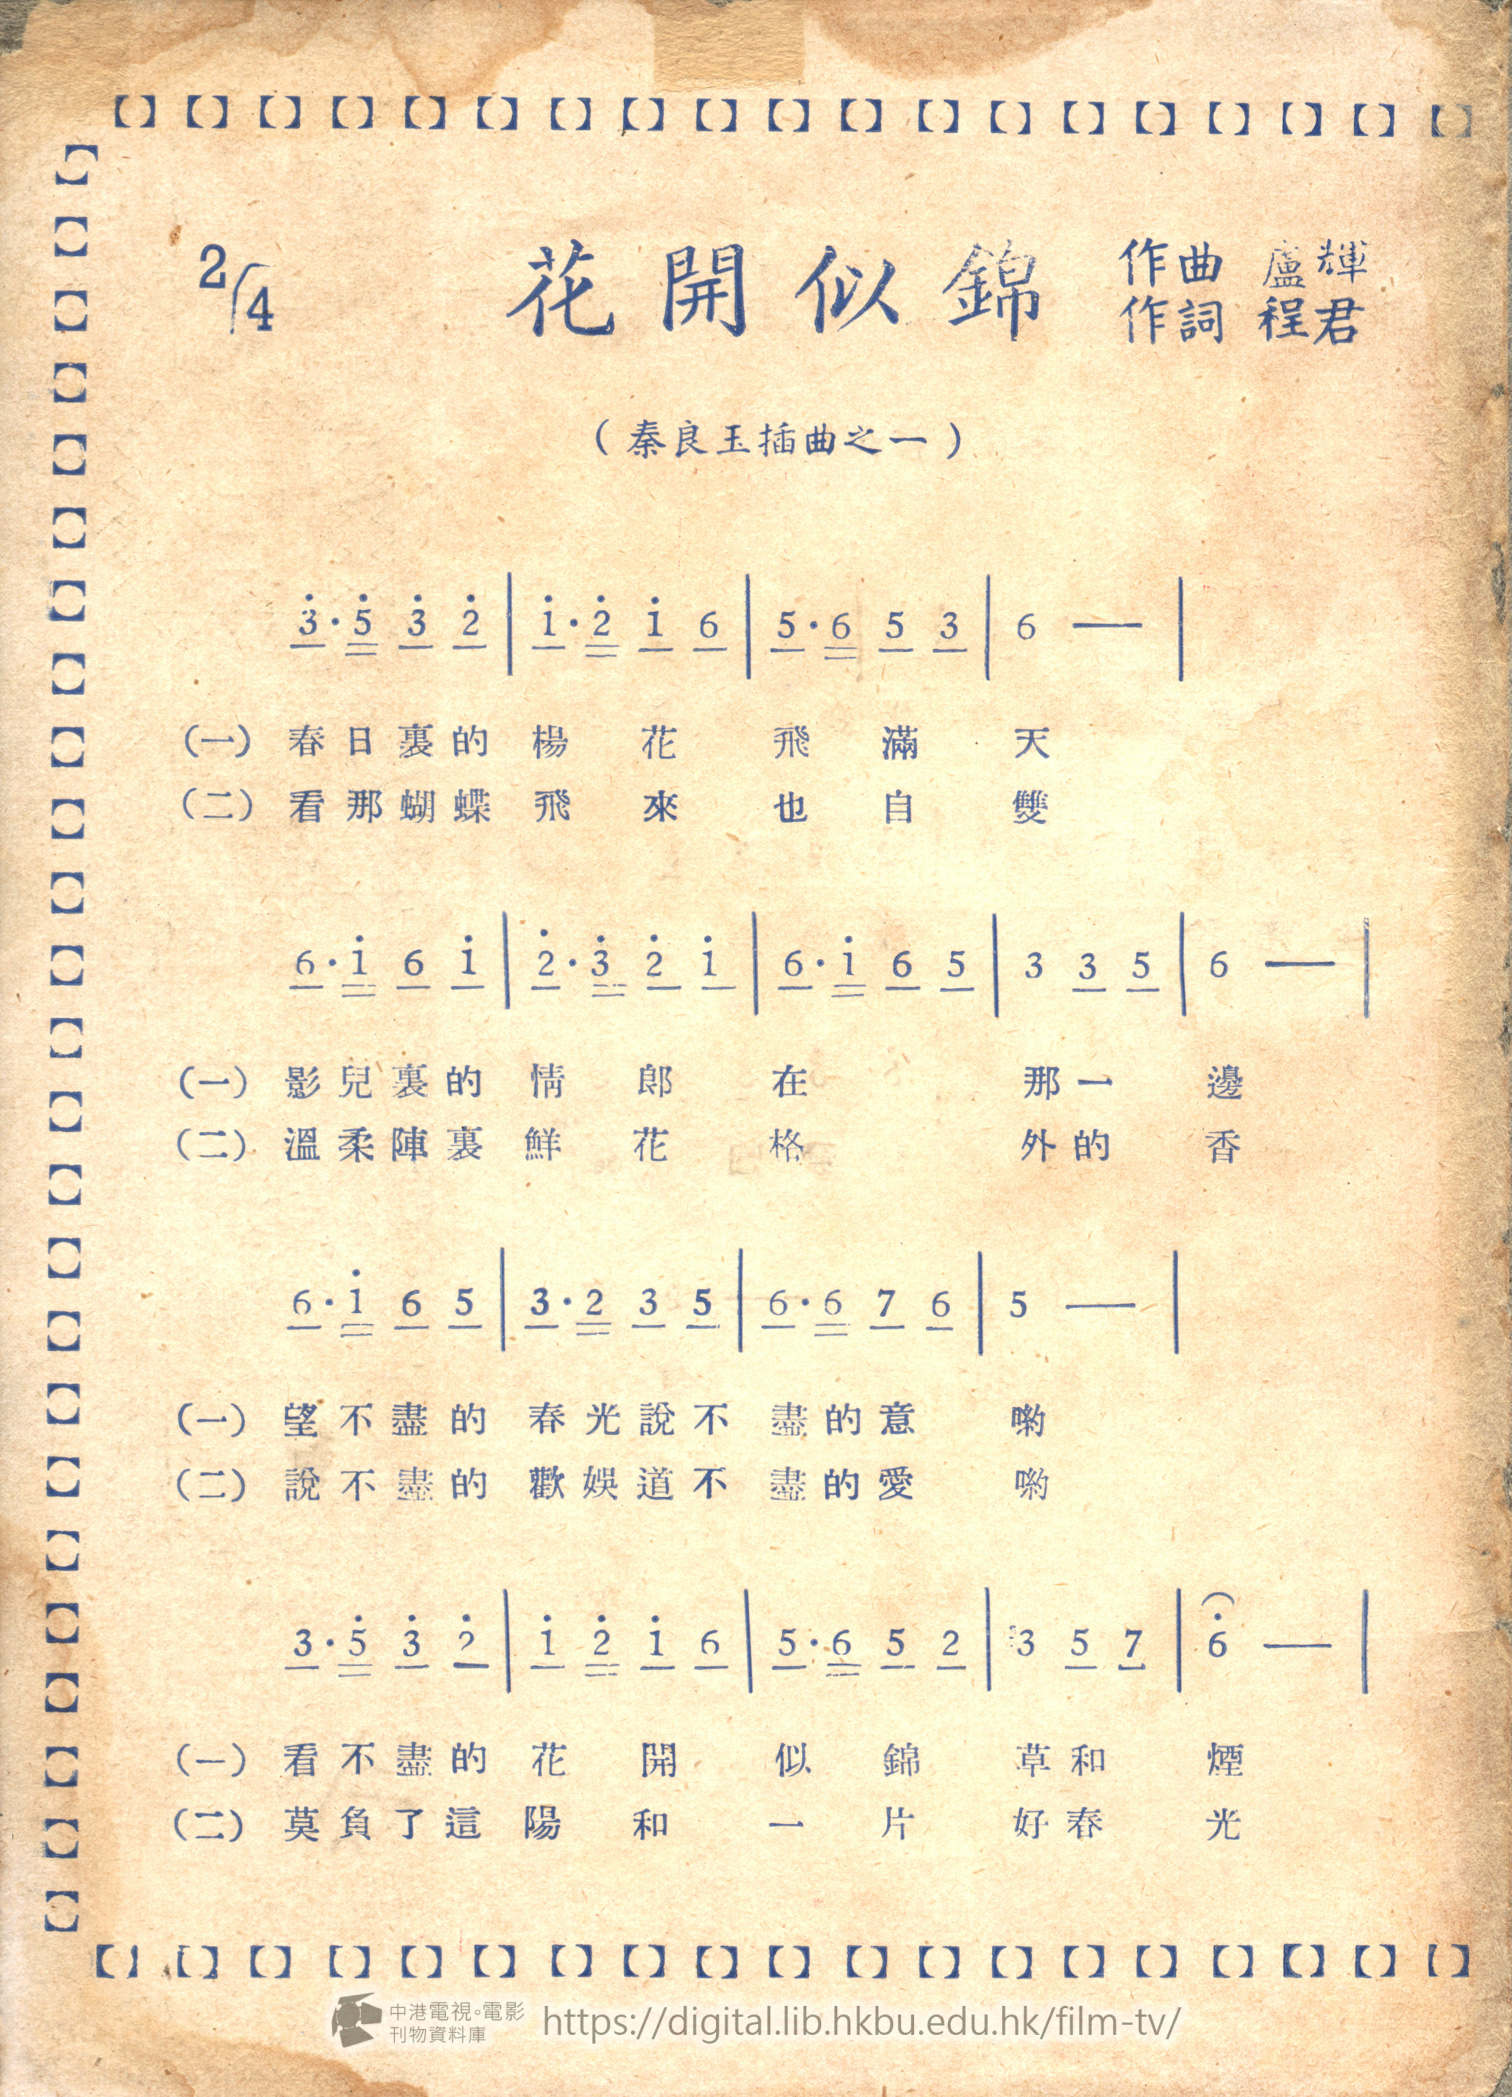 2/4
花開似錦
作曲 盧輝
作詞 程君
（秦良玉插曲之一）
3̇·5̇ 3̇ 2̇ | 1̇·2̇ 1̇ 6 | 5·6 5 3 | 6 — |
（一）春日裏的楊花飛滿天
（二）看那蝴蝶飛來也自雙
6·1̇ 6 1̇ | 2̇·3̇ 2̇ 1̇ | 6·1̇ 6 5 | 3 3 5 | 6 — |
（一）影兒裏的情郎在那一邊
（二）溫柔陣裏鮮花格外的香
6·1̇ 6 5 | 3·2 3 5 | 6·6 7 6 | 5 — |
（一）望不盡的春光說不盡的意喲
（二）說不盡的歡娛道不盡的愛喲
3·5̇ 3̇ 2̇ | 1̇ 2̇ 1̇ 6 | 5·6 5 2 | 3 5 7 | 6̇ — |
（一）看不盡的花開似錦草和煙
（二）莫負了這陽和一片好春光
中港電視。電影
刊物資料庫
https://digital.lib.hkbu.edu.hk/film-tv/